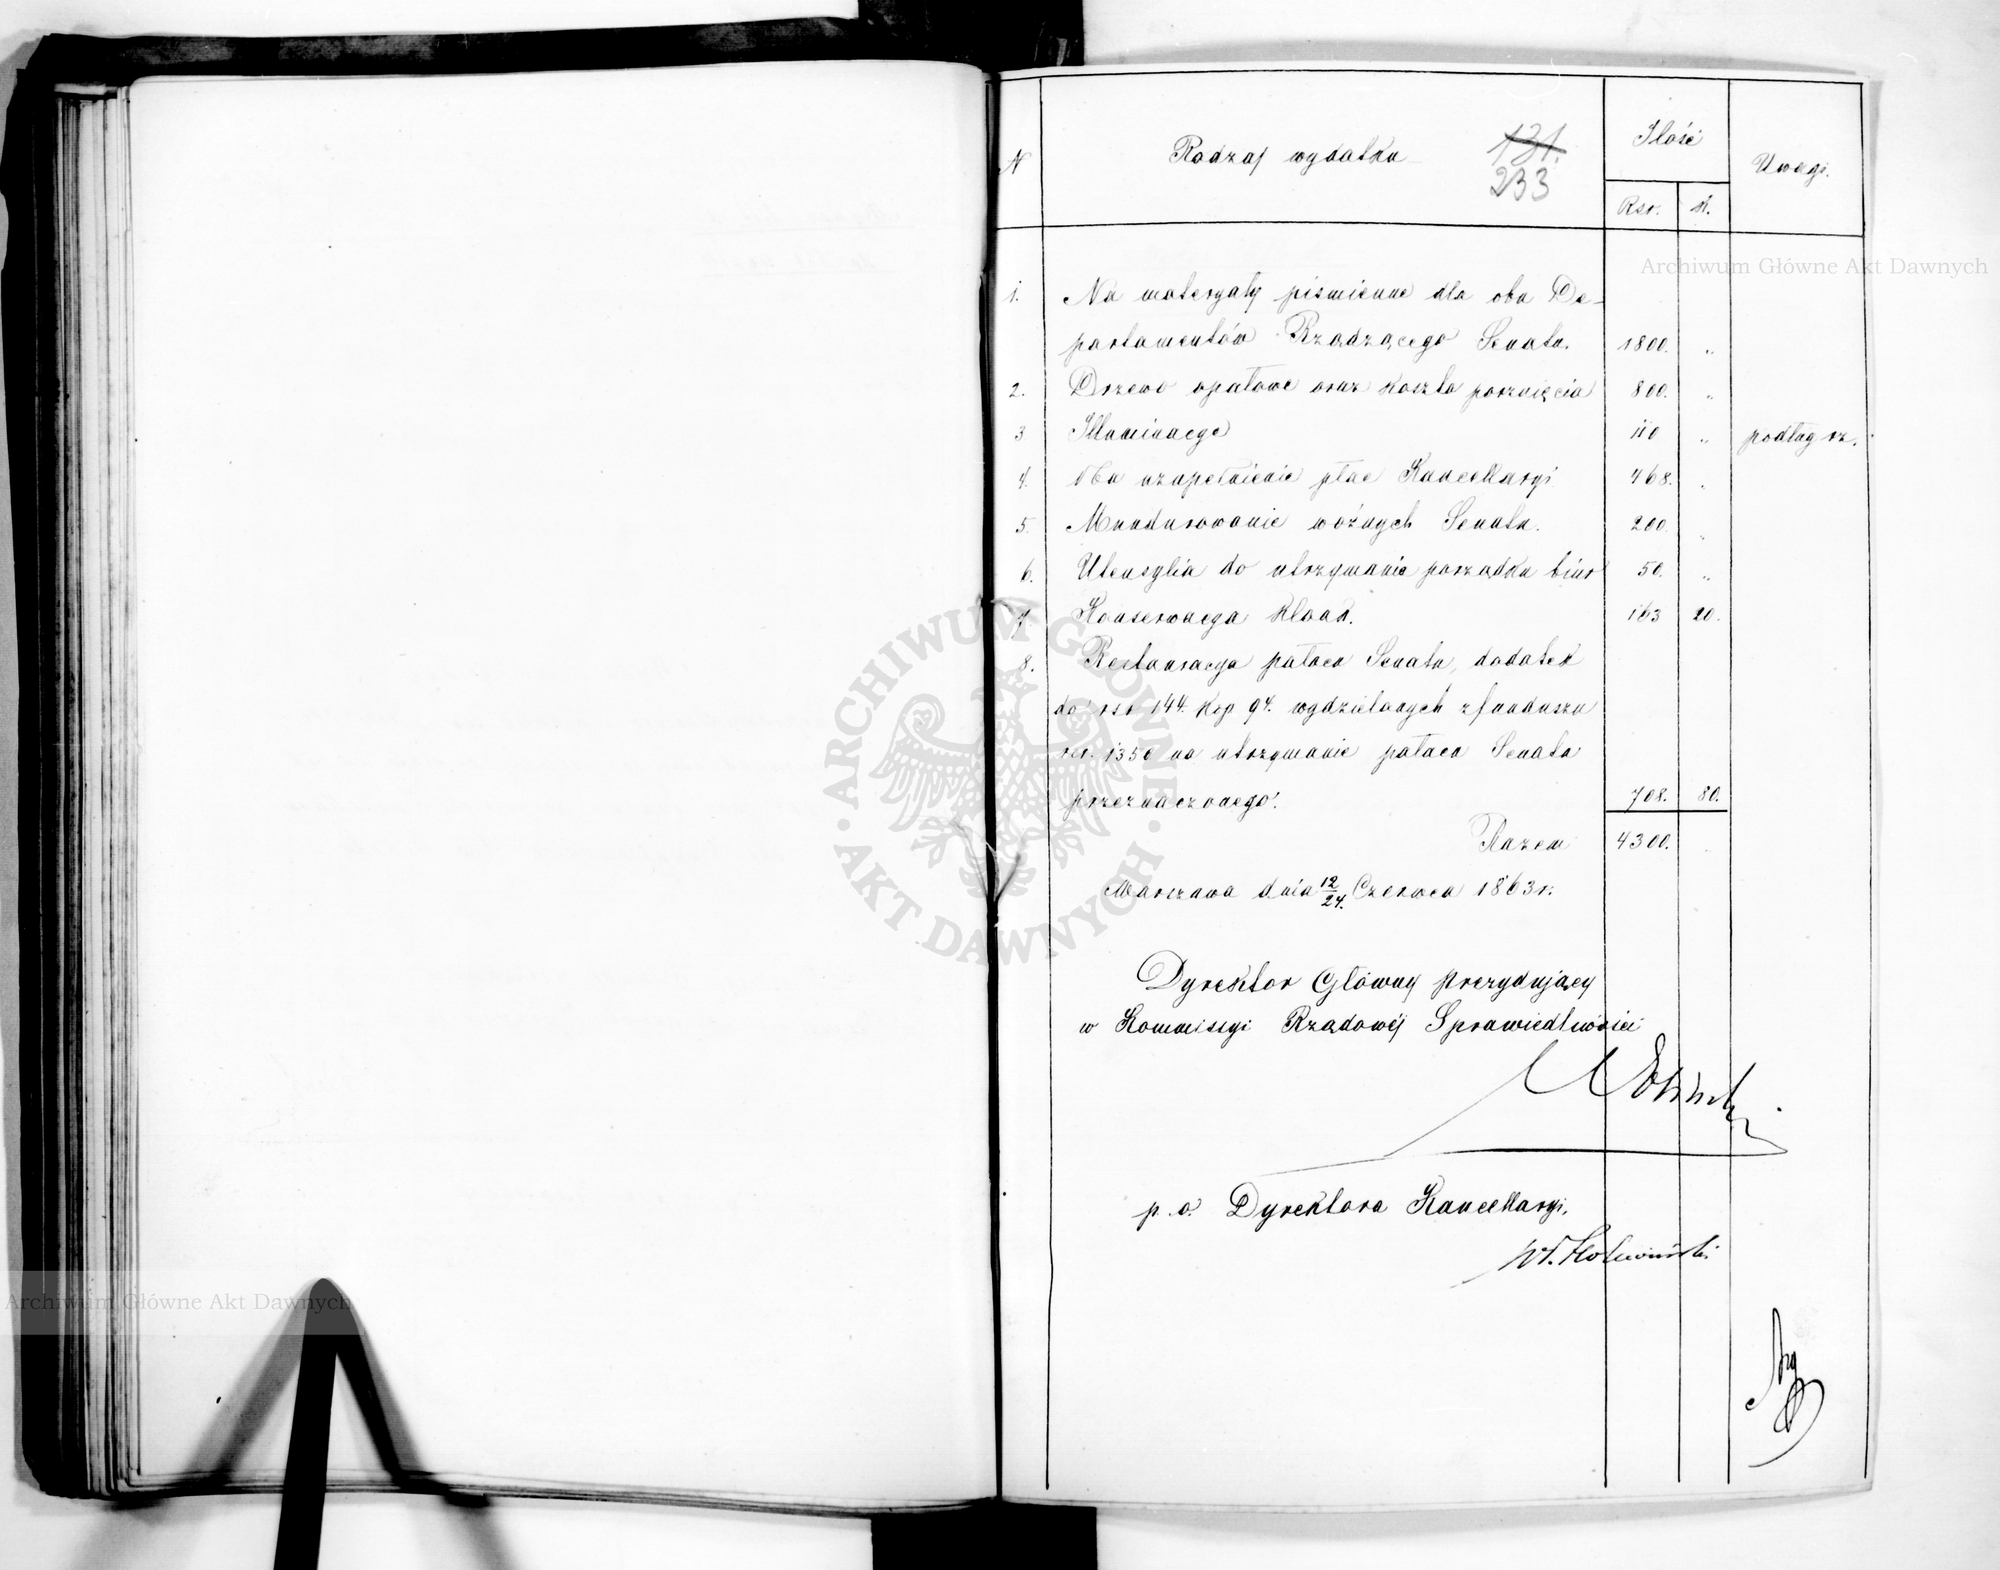 N
Rodzaj wydatku
131.
233
Ilość
Uwagi.
Rsr. k.
Archiwum Główne Akt Dawnych
1. Na materyały piśmienne dla obu De-
partamentów Rządzącego Senatu. 1800. „
2. Drzewo opałowe oraz koszta porznięcia 800. „
3 Illuminacye 110 „ podług rz.
4. Na uzupełnienie płac Kancellaryi 468. „
5. Mundurowanie woźnych Senatu. 200. „
6. Utensylia do utrzymania porządku biur 50. „
7 Konserwacya kloak. 163 20.
8. Restauracya pałacu Senatu, dodatek
do rsr 144. kop 94. wydzielonych z funduszu
rsr. 1350 na utrzymanie pałacu Senatu
przeznaczonego. 708. 80.
Razem 4300.
Warszawa dnia 12/24. Czerwca 1863 r.
Dyrektor Główny Prezydujący
w Kommissyi Rządowéj Sprawiedliwości
p. o. Dyrektora Kancellaryi,
ARCHIWUM GŁÓWNE
AKT DAWNYCH
Archiwum Główne Akt Dawnych